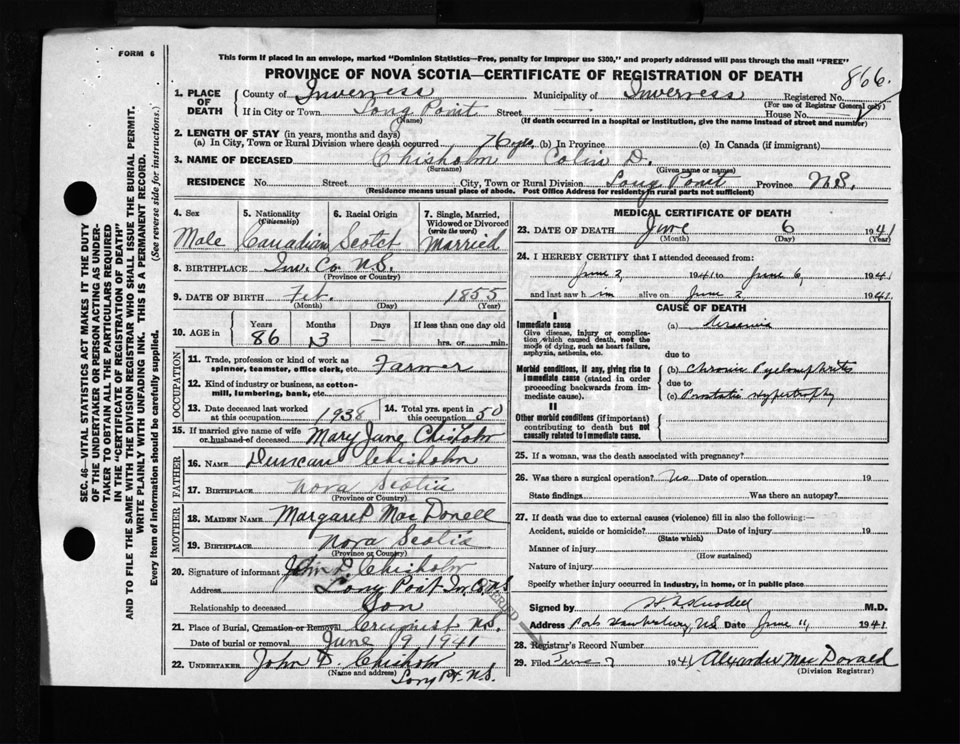 FORM 6
This form if placed in an envelope, marked "Dominion Statistics—Free, penalty for improper use $300," and properly addressed will pass through the mail "FREE"
PROVINCE OF NOVA SCOTIA—CERTIFICATE OF REGISTRATION OF DEATH
866.
1. PLACE OF DEATH County of Inverness Municipality of Inverness Registered No.
(For use of Registrar General only)
If in City or Town Long Point Street — House No. —
(Name) (If death occurred in a hospital or institution, give the name instead of street and number)
2. LENGTH OF STAY (in years, months and days)
(a) In City, Town or Rural Division where death occurred 76 yrs. (b) In Province (c) In Canada (if immigrant)
3. NAME OF DECEASED Chisholm Colin D.
(Surname) (Given name or names)
RESIDENCE No. Street City, Town or Rural Division Long Point Province N.S.
(Residence means usual place of abode. Post Office Address for residents in rural parts not sufficient)
4. Sex Male
5. Nationality (Citizenship) Canadian
6. Racial Origin Scotch
7. Single, Married, Widowed or Divorced (write the word) Married
8. BIRTHPLACE Inv. Co. N.S.
(Province or Country)
9. DATE OF BIRTH Feb. 1855
(Month) (Day) (Year)
10. AGE in Years 86 Months 3 Days — If less than one day old
hrs. or min.
OCCUPATION
11. Trade, profession or kind of work as spinner, teamster, office clerk, etc. Farmer
12. Kind of industry or business, as cotton-mill, lumbering, bank, etc.
13. Date deceased last worked at this occupation 1938
14. Total yrs. spent in this occupation 50
15. If married give name of wife or husband of deceased Mary Jane Chisholm
FATHER
16. Name Duncan Chisholm
17. Birthplace Nova Scotia
(Province or Country)
MOTHER
18. Maiden Name Margaret MacDonell
19. Birthplace Nova Scotia
(Province or Country)
20. Signature of informant John D. Chisholm
Address Long Point Inv. Co. N.S.
Relationship to deceased Son
21. Place of Burial, Cremation or Removal Creignish N.S.
Date of burial or removal June 9 1941
22. UNDERTAKER John D Chisholm
(Name and address) Long Pt. N.S.
MEDICAL CERTIFICATE OF DEATH
23. DATE OF DEATH June 6 1941
(Month) (Day) (Year)
24. I HEREBY CERTIFY that I attended deceased from:
June 2, 1941 to June 6, 1941
and last saw him alive on June 2 1941.
CAUSE OF DEATH
I
Immediate cause
Give disease, injury or complication which caused death, not the mode of dying, such as heart failure, asphyxia, asthenia, etc.
(a) Uraemia
due to
Morbid conditions, if any, giving rise to immediate cause (stated in order proceeding backwards from immediate cause).
(b) Chronic Pyelonephritis
due to
(c) Prostatic Hypertrophy
II
Other morbid conditions (if important) contributing to death but not causally related to immediate cause.
25. If a woman, was the death associated with pregnancy?
26. Was there a surgical operation? No Date of operation 19
State findings Was there an autopsy?
27. If death was due to external causes (violence) fill in also the following:—
Accident, suicide or homicide? Date of injury 19
(State which)
Manner of injury
(How sustained)
Nature of injury
Specify whether injury occurred in industry, in home, or in public place
Signed by M.D.
Address Port Hawkesbury, N.S. Date June 11, 1941.
28. Registrar's Record Number
29. Filed June 7 1941 Alexander MacDonald
(Division Registrar)
SEC. 46—VITAL STATISTICS ACT MAKES IT THE DUTY
OF THE UNDERTAKER OR PERSON ACTING AS UNDER-
TAKER TO OBTAIN ALL THE PARTICULARS REQUIRED
IN THE "CERTIFICATE OF REGISTRATION OF DEATH"
AND TO FILE THE SAME WITH THE DIVISION REGISTRAR WHO SHALL ISSUE THE BURIAL PERMIT.
WRITE PLAINLY WITH UNFADING INK. THIS IS A PERMANENT RECORD.
Every item of information should be carefully supplied. (See reverse side for instructions.)